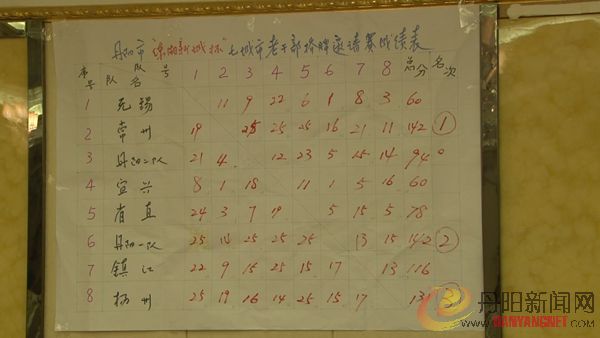 丹阳市"湖新城杯"七城市老干部桥牌邀请赛成绩表
序号 队名 队号 1 2 3 4 5 6 7 8 总分 名次
1 无锡 11 9 22 6 1 8 3 60
2 常州 19 25 25 25 16 21 11 142 ①
3 丹阳二队 21 4 12 23 5 15 14 94
4 宜兴 8 1 18 11 1 5 16 60
5 省直 24 3 7 19 5 15 5 78
6 丹阳一队 25 14 25 25 25 13 15 142 ②
7 镇江 22 9 15 25 15 17 13 116
8 扬州 25 19 16 14 25 15 17 ③
丹阳新闻网
DANYANGNET.COM